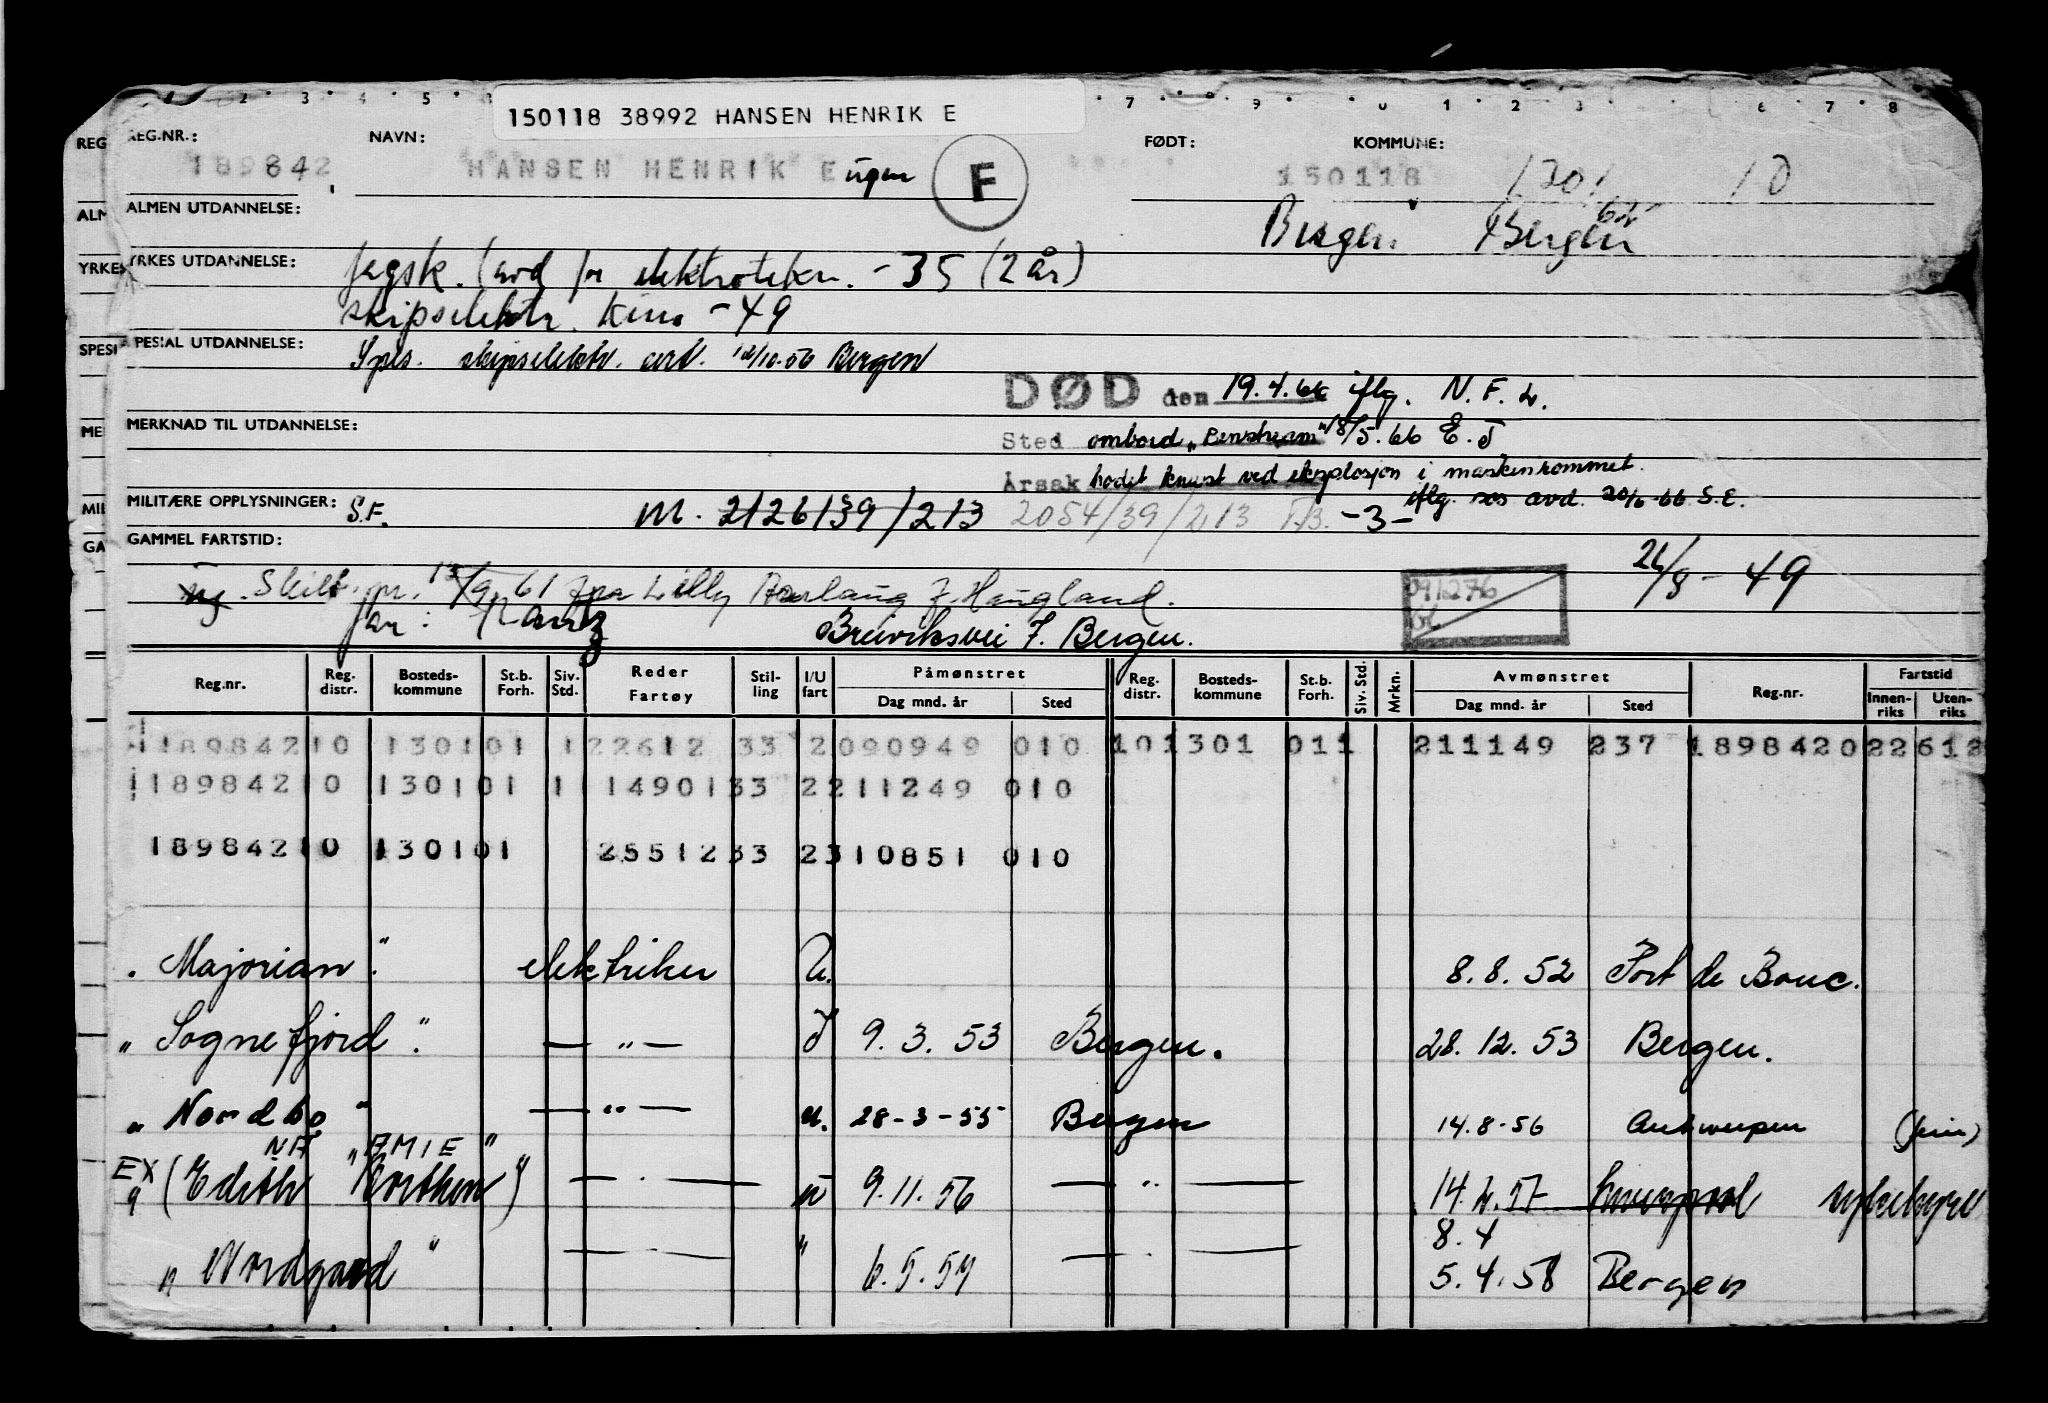 150118 38992 HANSEN HENRIK E
REG.NR.: NAVN: FØDT: KOMMUNE:
189842 HANSEN HENRIK Eugen F 150118 1301 10
ALMEN UTDANNELSE: Bergen Bergen
YRKES UTDANNELSE: fagsk. (avd for elektrotekn. -35 (2 år)
skipselektr. -49
SPESIAL UTDANNELSE: Spes. skipselektr. 12/10.56 Bergen
DØD den 19.4.66 iflg. N.F.
MERKNAD TIL UTDANNELSE: Sted ombord 18/5.66 E.J
Årsak hodet knust ved eksplosjon i maskinrommet.
MILITÆRE OPPLYSNINGER: S.F. M. 2126/39/213 2054/39/213 -3- iflg. sos avd. 20/6-66 S.E.
GAMMEL FARTSTID: 26/8-49
ug. Skilt pr. 13/9-61 fra Lilly Aaslaug f. Haugland.
far: Frantz Breiviksvei 7. Bergen.
091276
Reg.nr. Reg. distr. Bosteds-kommune St.b. Forh. Siv. Std. Reder Fartøy Stil-ling I/U fart Påmønstret Dag mnd. år Sted Reg. distr. Bosteds-kommune St.b. Forh. Siv. Std. Mrkn. Avmønstret Dag mnd. år Sted Reg.nr. Fartstid Innen-riks Uten-riks
118984210 130101 122612 33 2090949 010 101301 011 211149 237 1898420 22612
118984210 130101 11149013 3 2211249 010
18984210 130101 2551233 2310851 010
"Majorian" elektriker U. 8.8.52 Port de Bouc.
"Sognefjord". — " — J 9.3.53 Bergen. 28.12.53 Bergen.
"Nordbo" — " — u. 28-3-55 Bergen 14.8-56 Antwerpen (ferie)
NÅ "AMIE"
EX (Edith Borthen) — " — u 9.11.56 — " — 14.4.57 Liverpool
8.4
"Nordgard" — " 6.5.57 — " — 5.4.58 Bergen